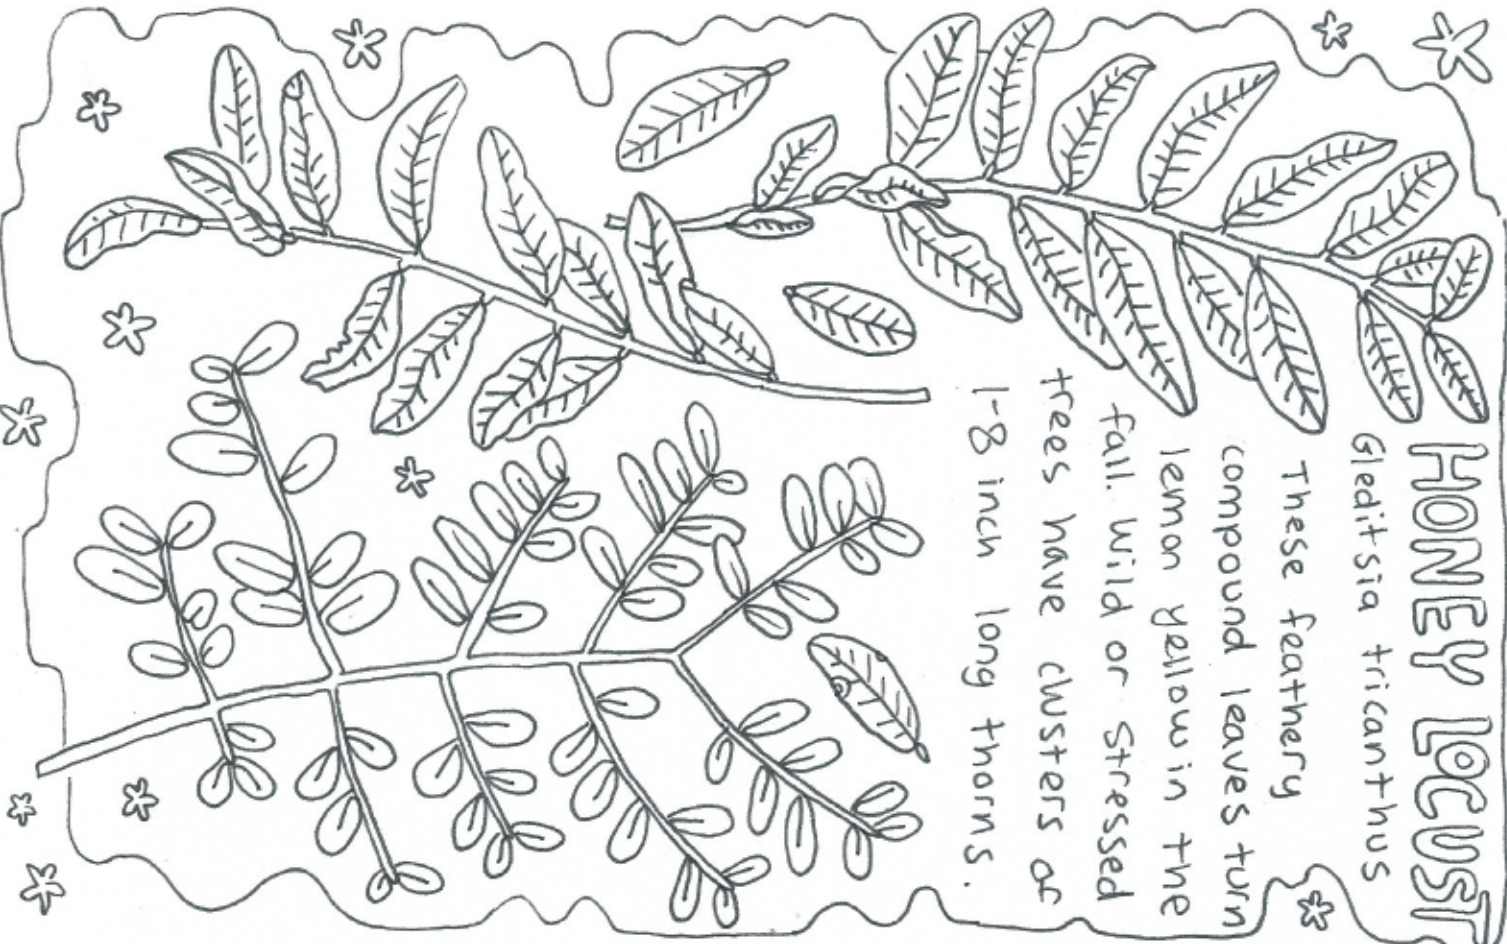 HONEY LOCUST
Gleditsia tricanthus
These feathery
compound leaves turn
lemon yellow in the
fall. Wild or stressed
trees have clusters of
1-8 inch long thorns.